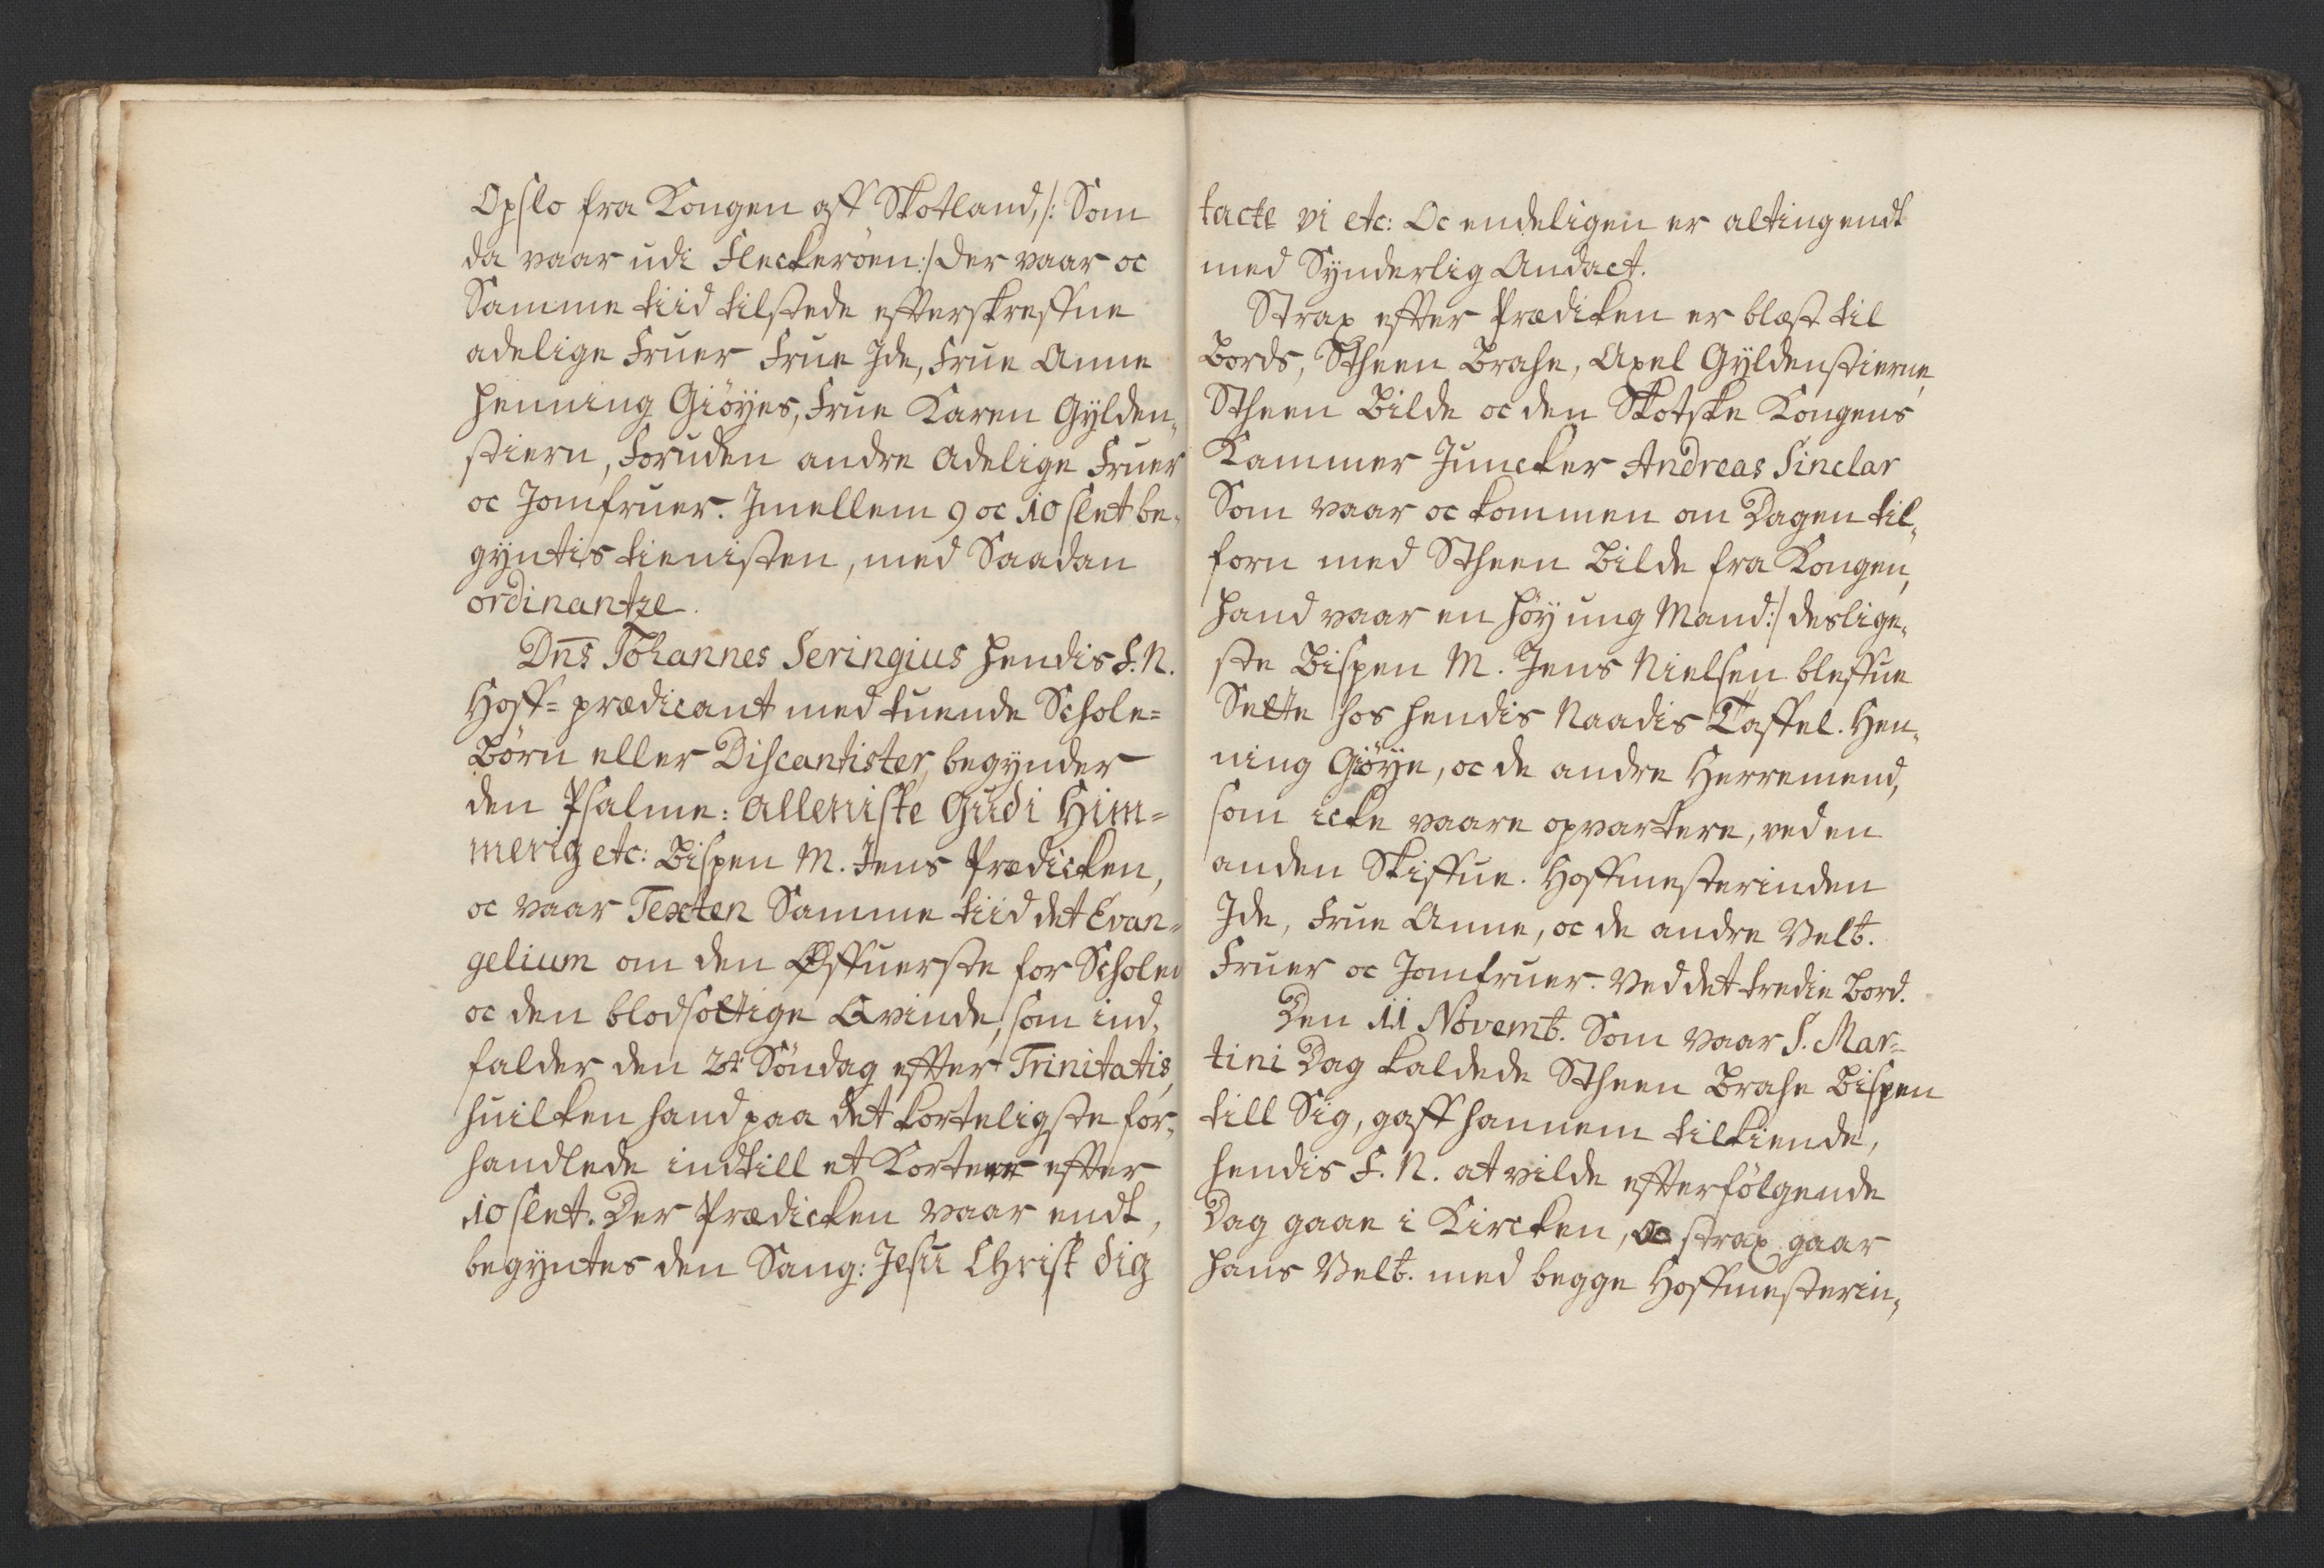 Opslo fra Kongen aff Skotland, /: Som
da vaar udi Fleckerøen :/ der vaar oc
Samme tiid tilstede effterskreffne
adelige Fruer Frue Ide, Frue Anne
Henning Giöyes, Frue Karen Gÿlden„
stiern, Foruden andre Adelige Fruer
oc Jomfruer. Imellem 9 oc 10 slet be„
gyntis tienisten, med Saadan
ordinantze.
Dn̄s Johannes Seringius Hendis F. N.
Hoff= prædicant med tuende Schole=
Børn eller Discantister, begynder
den Psalme: Alleniste Gudi Him=
merig etc: Bispen M. Jens Prædicken,
oc vaar Texten Samme tiid det Evan=
gelium om den Øffuerste for Scholen
oc den blodsottige Qvinde, som ind„
falder den 24 Söndag effter Trinitatis,
huilken hand paa det korteligste for„
handlede indtill et Korteer effter
10 slet. Der Prædicken vaar endt,
begyntes den Sang: Jesu Christ dig
tacke vi etc: Oc endeligen er alting endt
med Sÿnderlig Andact.
Strax effter Prædiken er blæst til
Bords, Stheen Brahe, Axel Gÿldenstierne,
Stheen Bilde oc den Skotske Kongens
Kammer Juncker Andreas Sinclar
Som vaar oc kommen om Dagen til„
forn med Stheen Bilde fra Kongen,
Hand vaar en höÿ ung Mand :/ deslige„
ste Bispen M. Jens Nielsen bleffue
Sette hos hendis Naadis Taffel. Hen„
ning Giöÿe, oc de andre Herremend,
som icke vaare opvartere, ved en
anden Skiffue. Hoffmesterinden
Ide, Frue Anne, oc de andre Velb.
Fruer oc Jomfruer. Ved det tredie Bord.
Den 11 Novemb. Som vaar S. Mar=
tini Dag kaldede Stheen Brahe Bispen
till Sig, gaff hannem tilkiende,
hendis F. N. at vilde effterfölgende
Dag gaae i Kircken, Oc strax gaar
hans Velb. med begge Hoffmesterin„